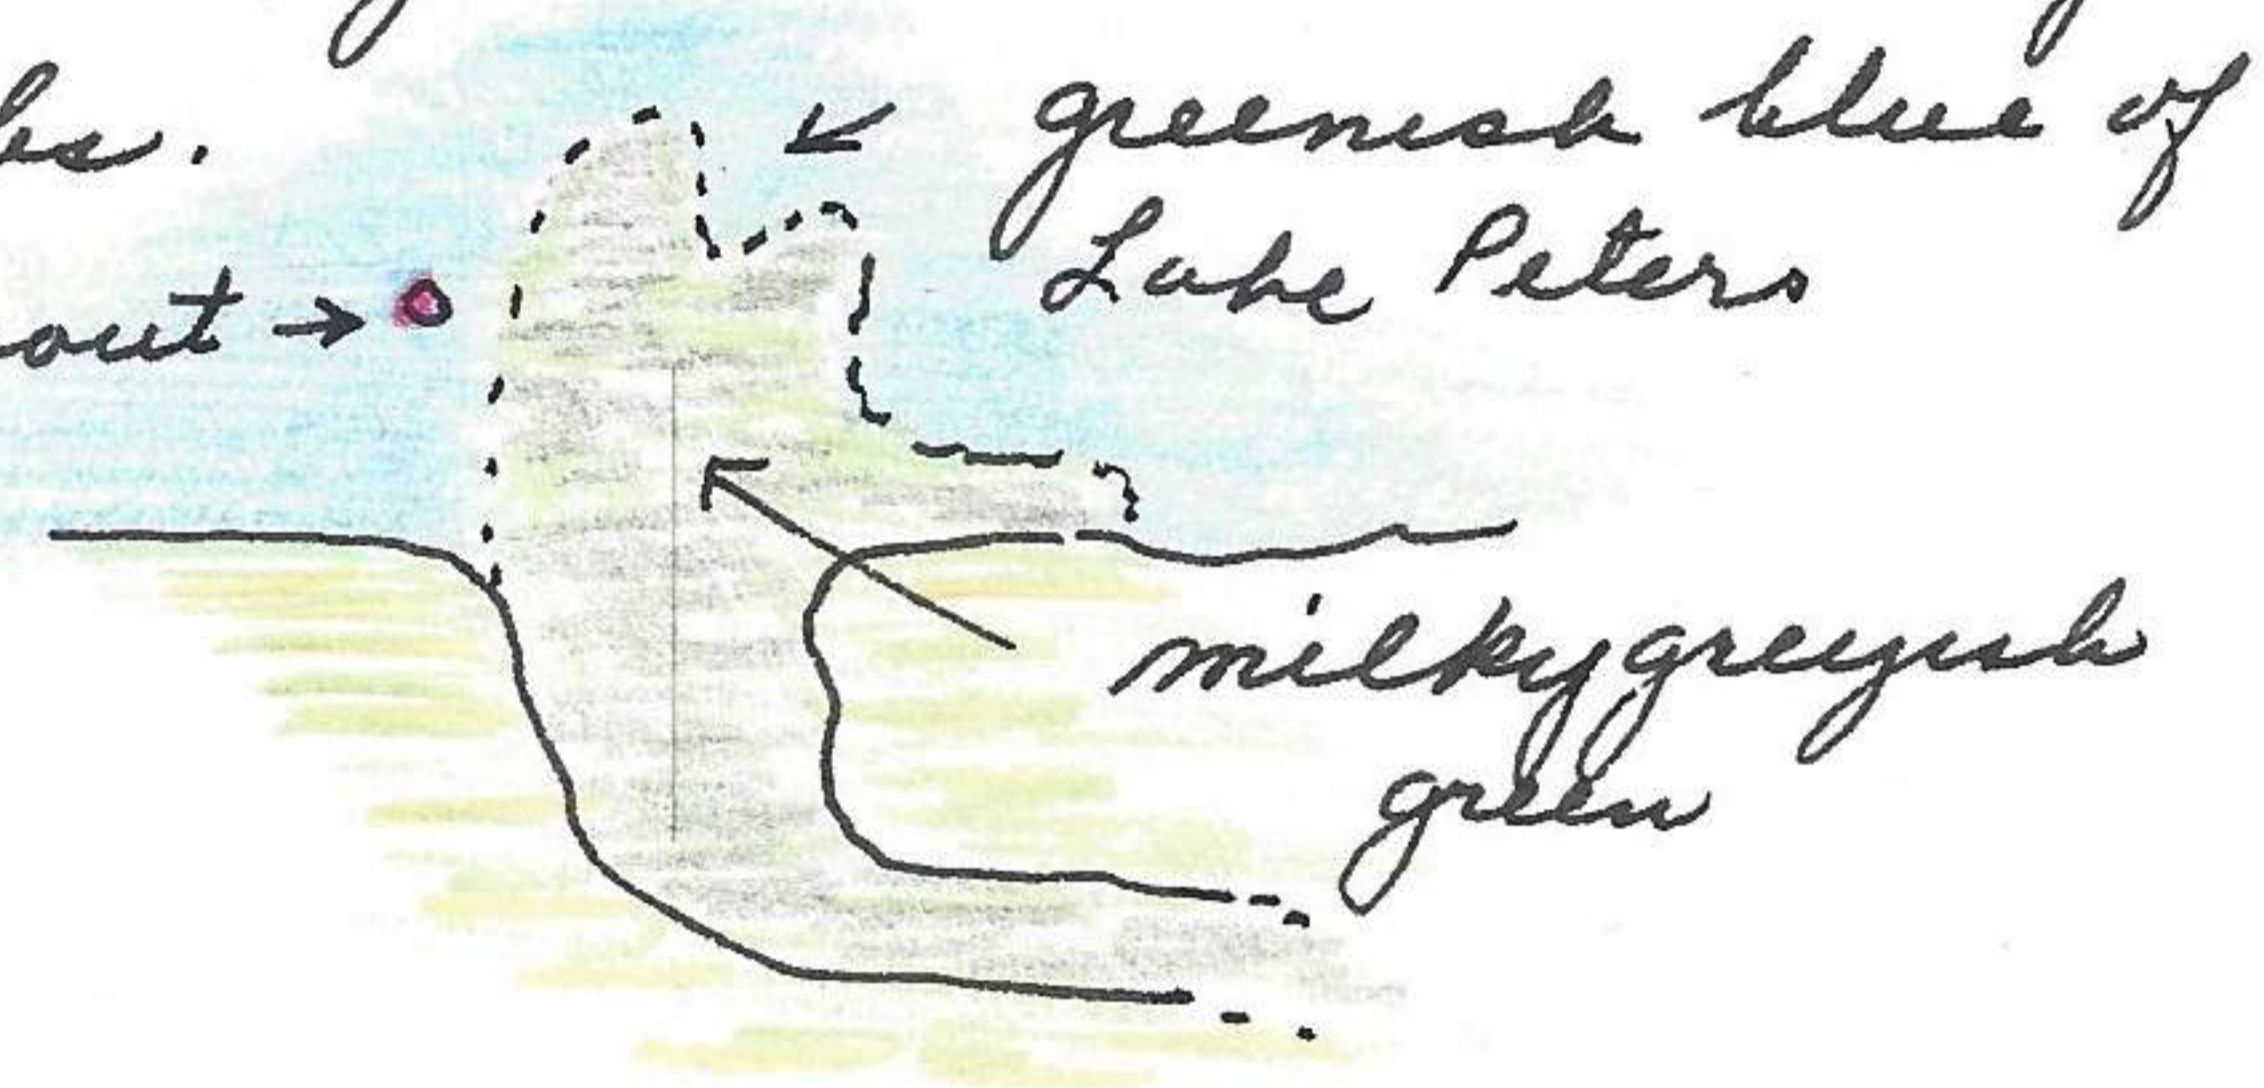 greenish blue of
Lake Peters
out →
milky greyish
green